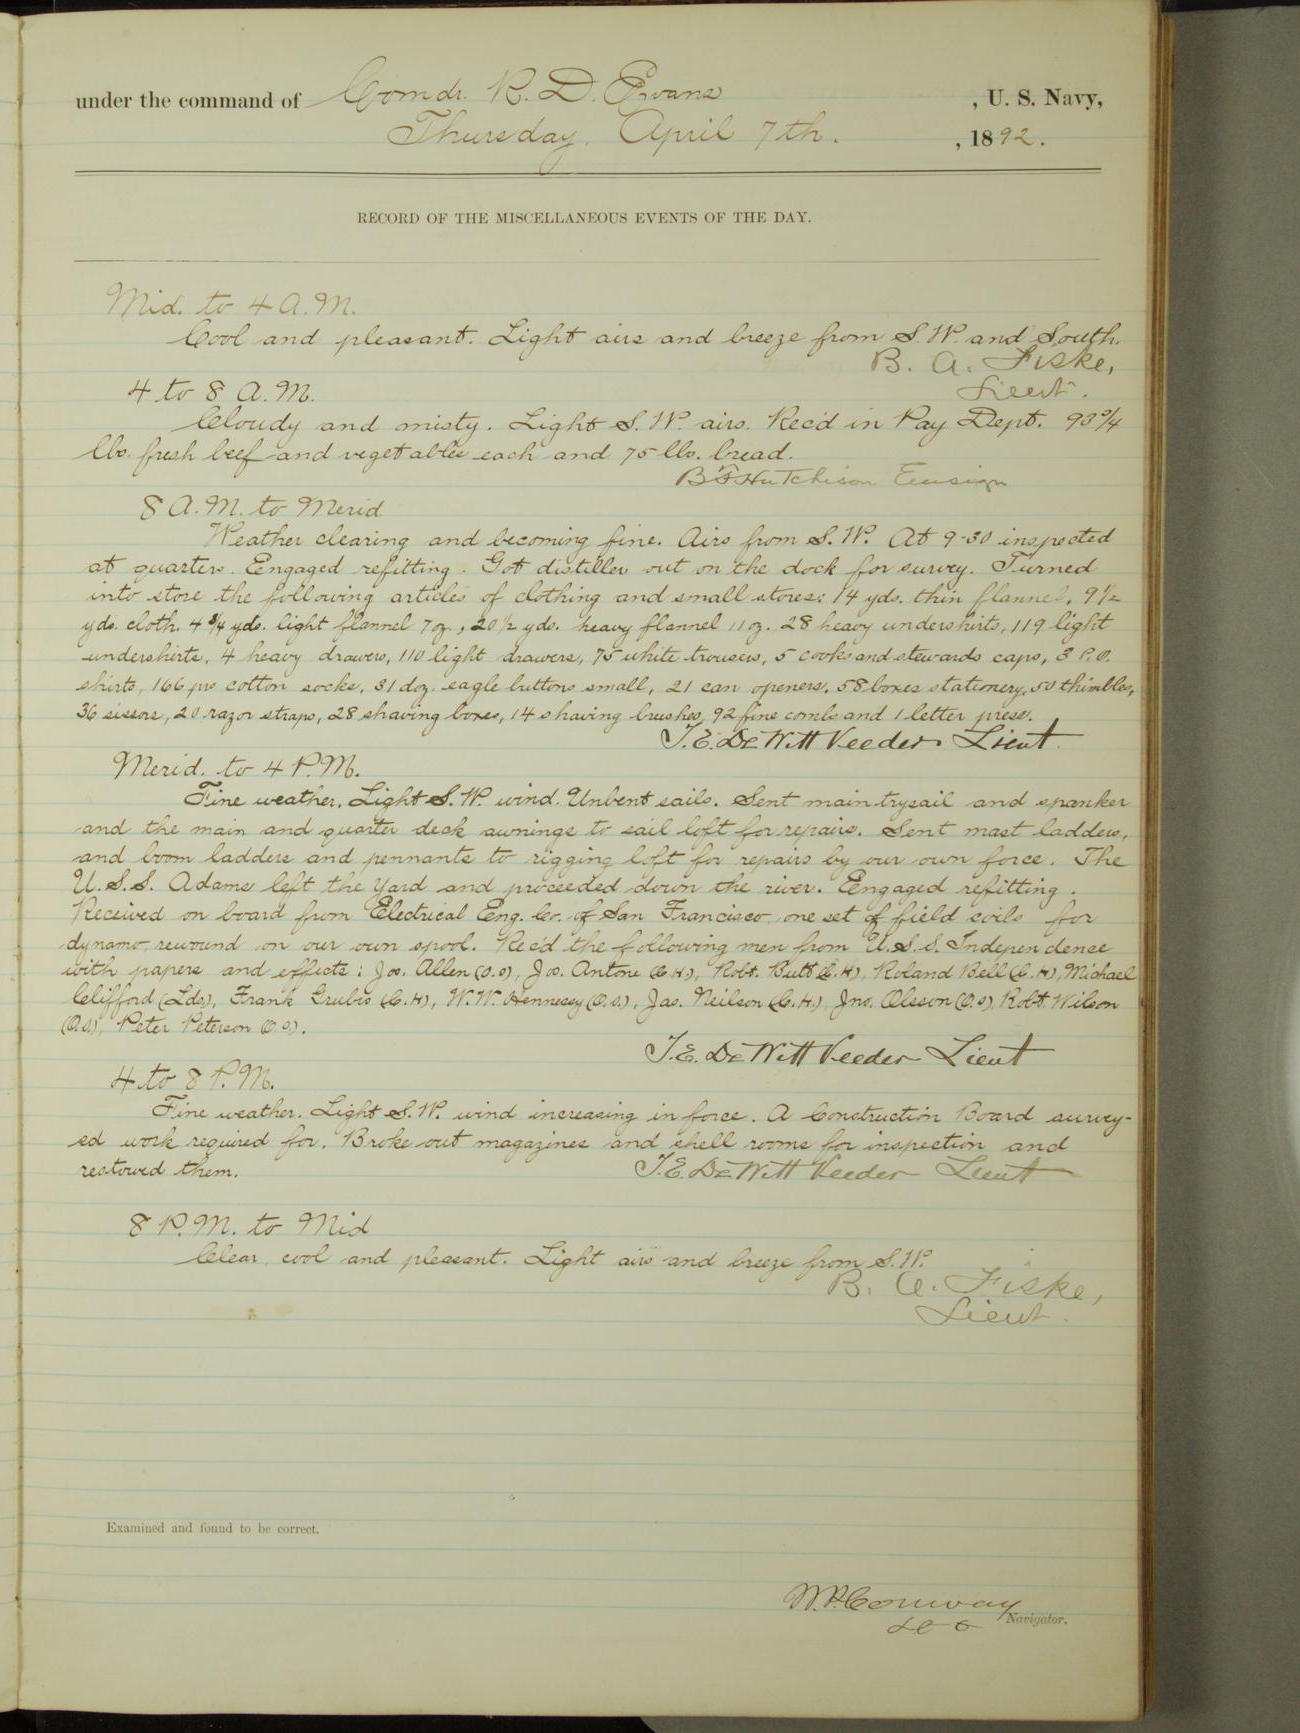 under the command of Comdr. R. D. Evans, U. S. Navy,
Thursday, April 7th., 1892.
RECORD OF THE MISCELLANEOUS EVENTS OF THE DAY.
Mid. to 4 A.M.
Cool and pleasant. Light airs and breeze from S.W. and South.
B. A. Fiske,
Lieut.
4 to 8 A.M.
Cloudy and misty. Light S.W. airs. Rec'd in Pay Dept. 93 3/4
lbs. fresh beef and vegetables each and 75 lbs. bread.
B F Hutchison Ensign
8 A.M. to Merid
Weather clearing and becoming fine. Airs from S.W. At 9-30 inspected
at quarters. Engaged refitting. Got distiller out on the dock for survey. Turned
into store the following articles of clothing and small stores: 14 yds. thin flannel, 9 1/2
yds. cloth. 4 3/4 yds. light flannel 7 oz., 20 1/2 yds. heavy flannel 11 oz. 28 heavy undershirts, 119 light
undershirts, 4 heavy drawers, 110 light drawers, 75 white trousers, 5 cooks and stewards caps, 3 P.O.
shirts, 166 prs cotton socks, 31 doz. eagle buttons small, 21 can openers, 58 boxes stationery, 50 thimbles,
36 sissors, 20 razor straps, 28 shaving boxes, 14 shaving brushes, 92 fine combs and 1 letter press.
T.E. De Witt Veeder Lieut.
Merid. to 4 P.M.
Fine weather. Light S.W. wind. Unbent sails. Sent main trysail and spanker
and the main and quarter deck awnings to sail loft for repairs. Sent mast ladders,
and boom ladders and pennants to rigging loft for repairs by our own force. The
U.S.S. Adams left the Yard and proceeded down the river. Engaged refitting.
Received on board from Electrical Eng. Co. of San Francisco one set of field coils for
dynamo, rewound on our own spool. Rec'd the following men from U.S.S. Independence
with papers and effects: Jos. Allen (O.S), Jos. Antone (C.H.), Robt. Butt (C.H), Roland Bell (C.H), Michael
Clifford (Lds), Frank Grubis (C.H), W.W. Hennesey (O.S.), Jas. Neilson (C.H.), Jno. Olsson (O.S), Robt. Wilson
(O.S), Peter Peterson (O.S).
T.E. De Witt Veeder Lieut
4 to 8 P.M.
Fine weather. Light S.W. wind increasing in force. A Construction Board survey-
ed work required for. Broke out magazines and shell rooms for inspection and
restowed them. T.E. De Witt Veeder Lieut
8 P.M. to Mid
Clear, cool and pleasant. Light airs and breeze from S.W.
B. A. Fiske,
Lieut.
Examined and found to be correct.
W.P. Conway
Navigator.